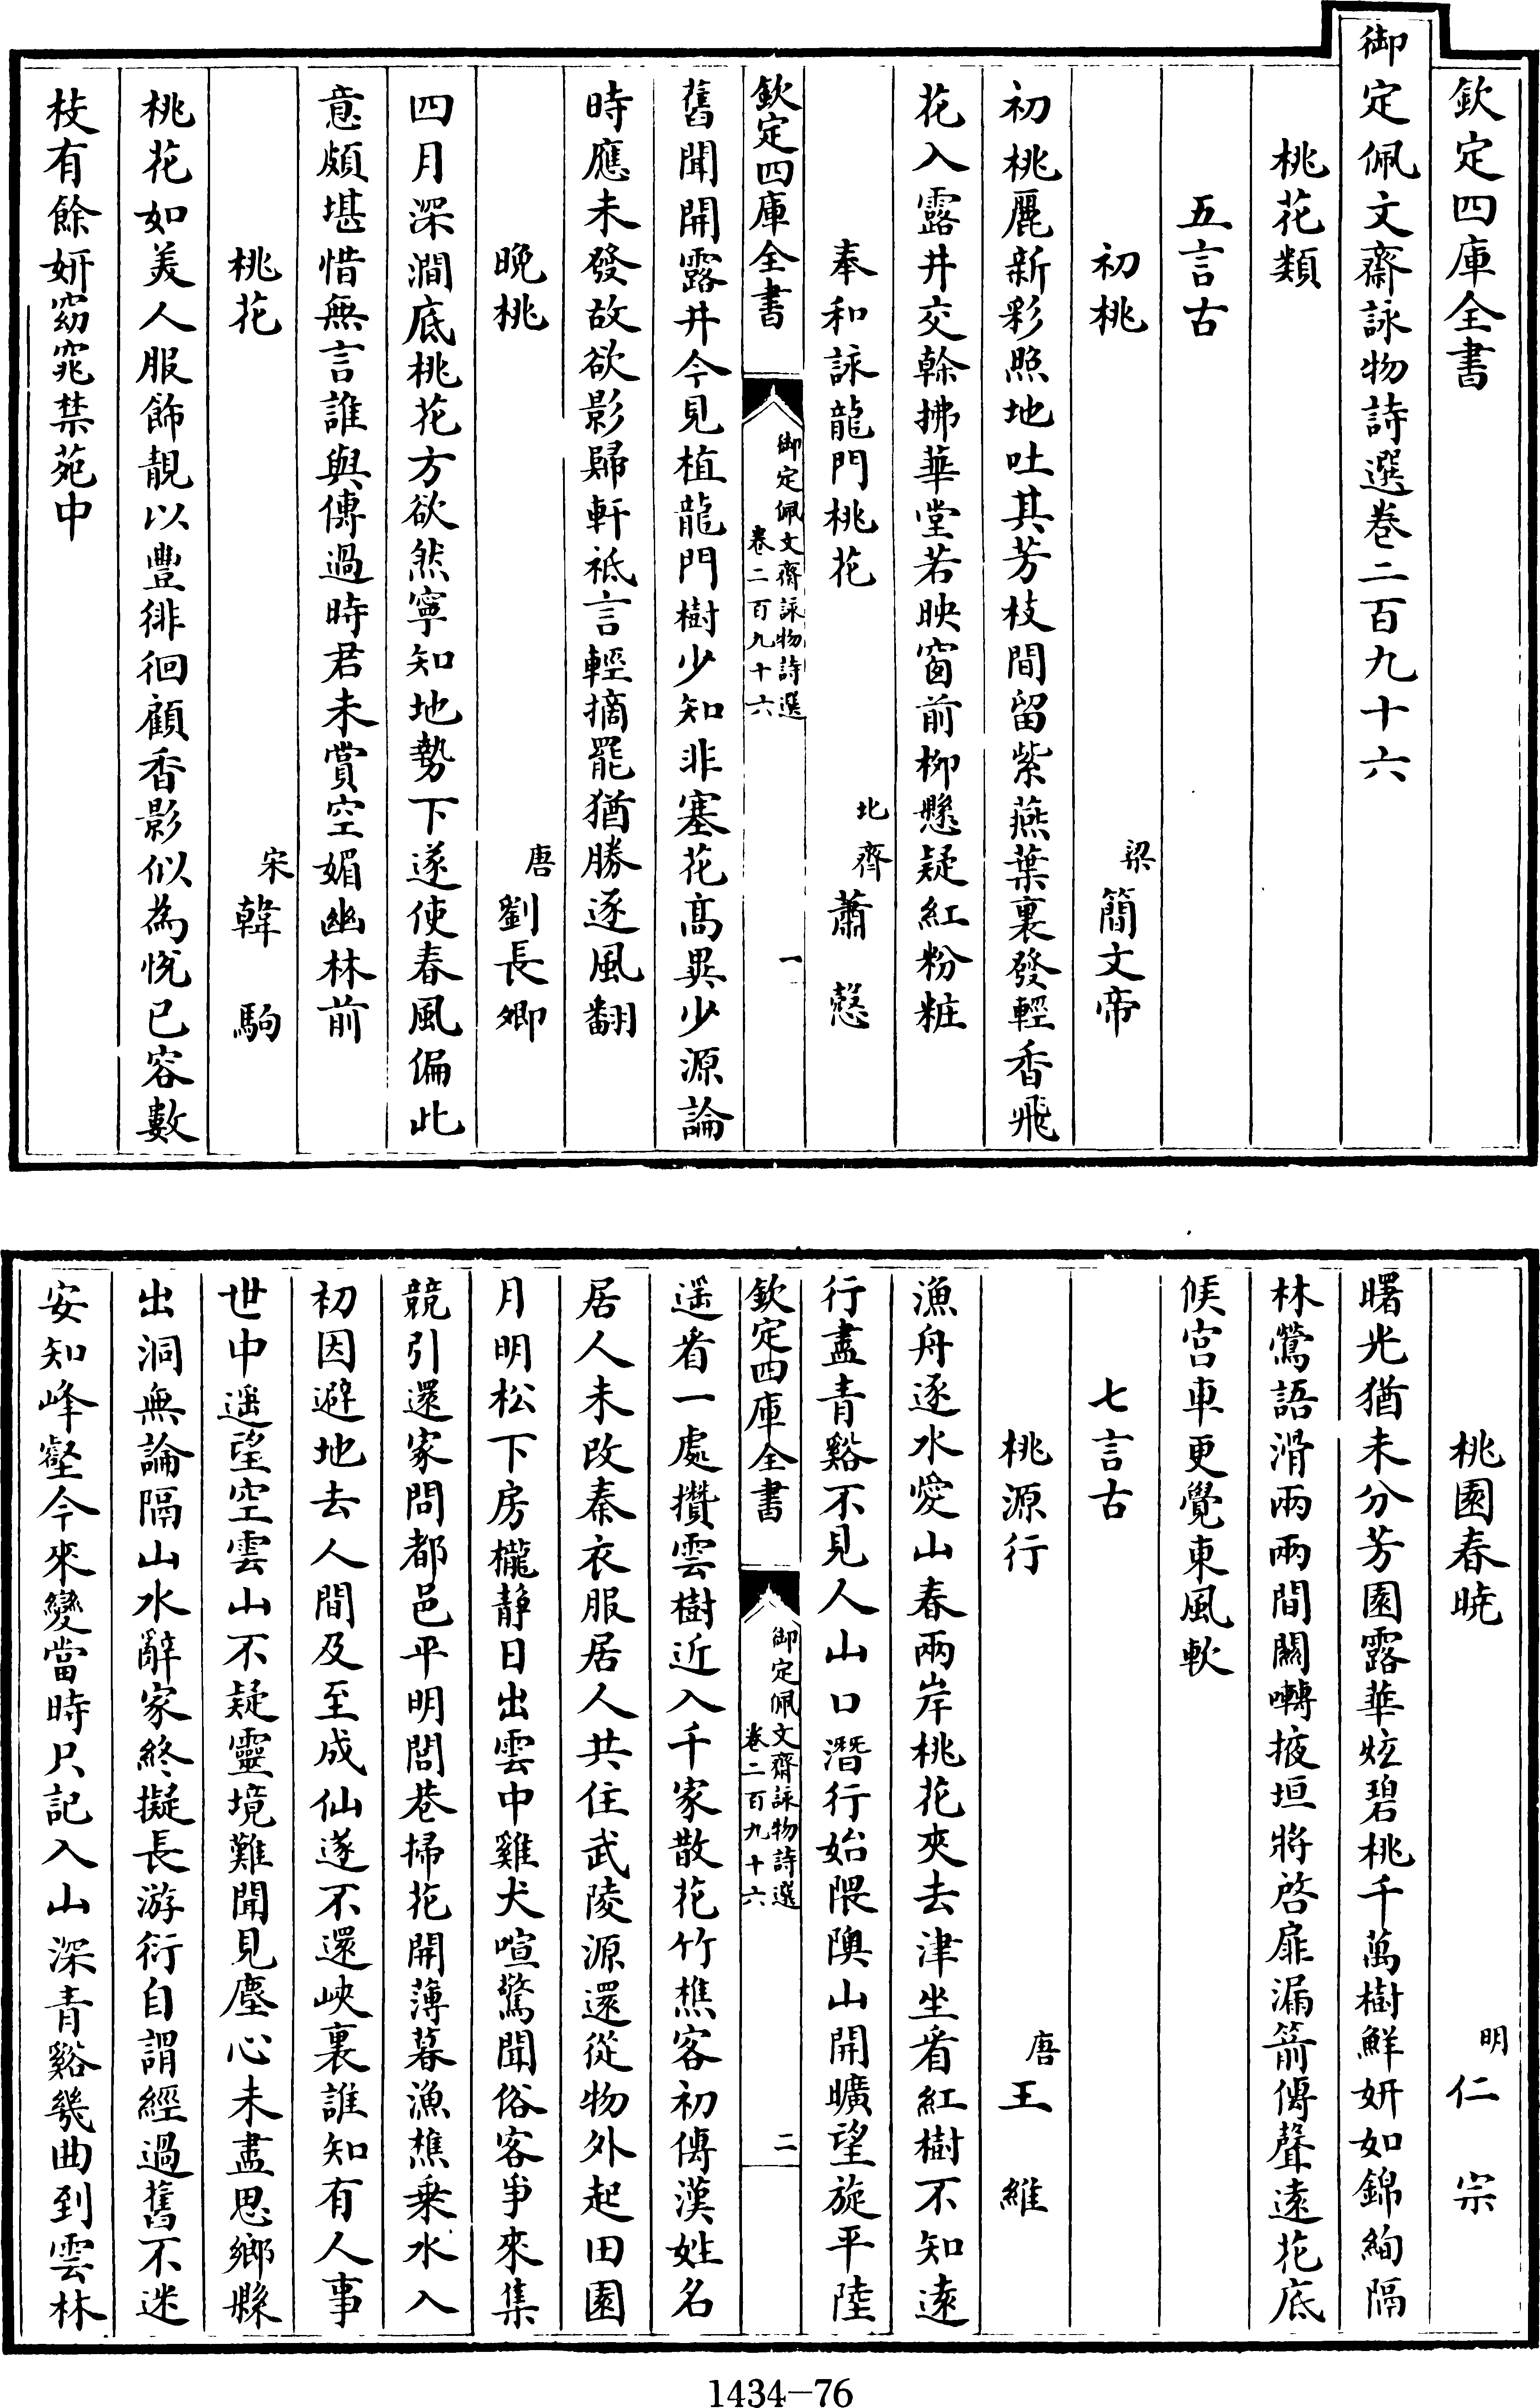 欽定四庫全書
御定佩文齋詠物詩選卷二百九十六
桃花類
五言古
初桃　梁簡文帝
初桃麗新彩照地吐其芳枝間留紫燕葉裏發輕香飛
花入露井交幹拂華堂若映窗前柳懸疑紅粉粧
奉和詠龍門桃花　北齊蕭慤
欽定四庫全書
御定佩文齋詠物詩選
卷二百九十六
一
舊聞開露井今見植龍門樹少知非塞花高異少源論
時應未發故欲影歸軒祇言輕摘罷猶勝逐風翻
晚桃　唐劉長卿
四月深澗底桃花方欲然寧知地勢下遂使春風偏此
意頗堪惜無言誰與傳過時君未賞空媚幽林前
桃花　宋韓駒
桃花如美人服飾靚以豐徘徊顧香影似為悅已容數
枝有餘妍窈窕禁苑中
桃園春曉　明仁宗
曙光猶未分芳園露華炫碧桃千萬樹鮮妍如錦絢隔
林鶯語滑兩兩間關囀掖垣將啓扉漏箭傳聲遠花底
候宮車更覺東風軟
七言古
桃源行　唐王維
漁舟逐水愛山春兩岸桃花夾去津坐看紅樹不知遠
行盡青谿不見人山口潛行始隈隩山開曠望旋平陸
欽定四庫全書
御定佩文齋詠物詩選
卷二百九十六
二
遥看一處攢雲樹近入千家散花竹樵客初傳漢姓名
居人未改秦衣服居人共住武陵源還從物外起田園
月明松下房櫳静日出雲中雞犬喧驚聞俗客爭來集
競引還家問都邑平明閭巷掃花開薄暮漁樵乘水入
初因避地去人間及至成仙遂不還峽裏誰知有人事
世中遥望空雲山不疑靈境難聞見塵心未盡思鄉縣
出洞無論隔山水辭家終擬長游衍自謂經過舊不迷
安知峰壑今來變當時只記入山深青谿幾曲到雲林
1434-76